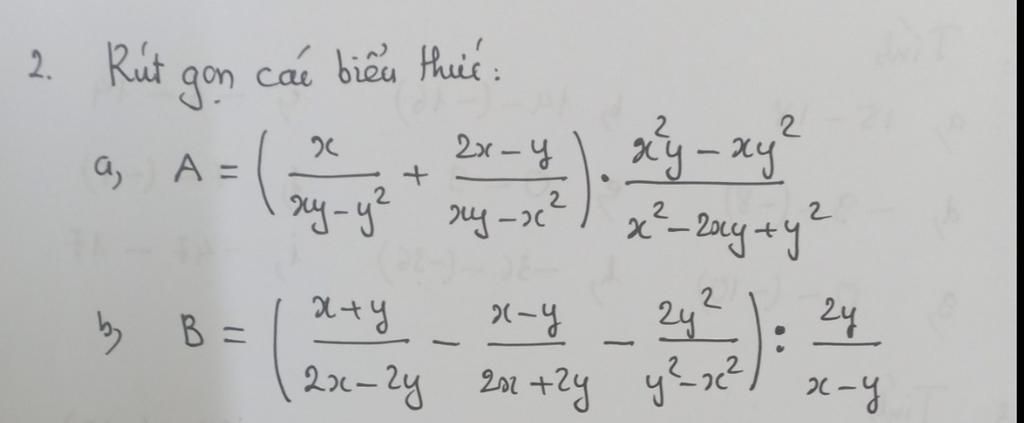 2. Rút gọn các biểu thức:
a, A = (x/(xy - y²) + (2x - y)/(xy - x²)) · (x²y - xy²)/(x² - 2xy + y²)
b, B = ((x + y)/(2x - 2y) - (x - y)/(2x + 2y) - 2y²/(y² - x²)) : 2y/(x - y)